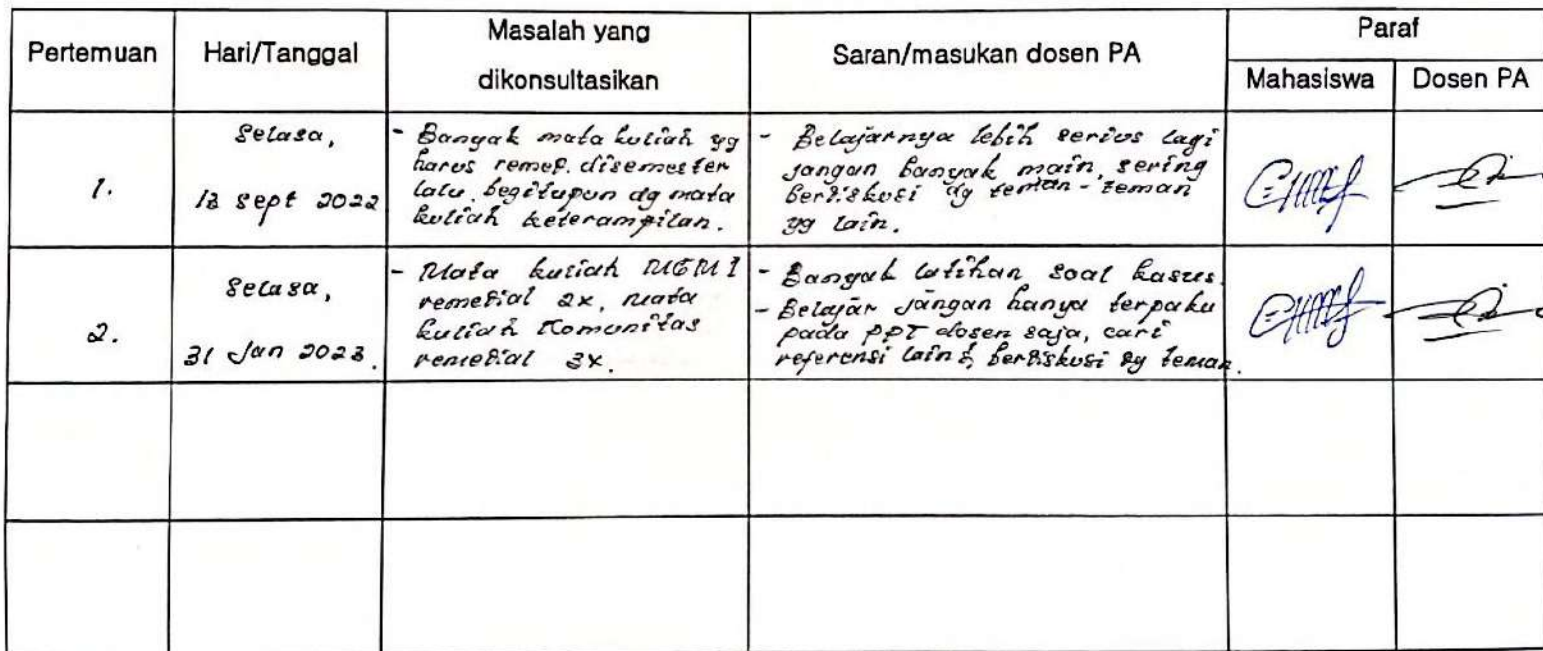 Pertemuan
Hari/Tanggal
Masalah yang
dikonsultasikan
Saran/masukan dosen PA
Paraf
Mahasiswa
Dosen PA
1.
Selasa,
13 sept 2022
- Banyak mata kuliah yg
harus remed. disemester
lalu. begitupun dg mata
kuliah keterampilan.
- Belajarnya lebih serius lagi
jangan banyak main, sering
berdiskusi dg teman-teman
yg lain.
2.
Selasa,
31 Jan 2023.
- Mata kuliah
remedial 2x, mata
kuliah Komunitas
remedial 3x.
- Banyak latihan soal kasus.
- Belajar jangan hanya terpaku
pada PPT dosen saja, cari
referensi lain & berdiskusi dg teman.